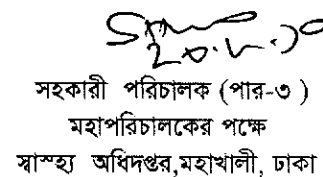 সহকারী পরিচালক (পার-৩)
মহাপরিচালকের পক্ষে
স্বাস্হ্য অধিদপ্তর,মহাখালী, ঢাকা